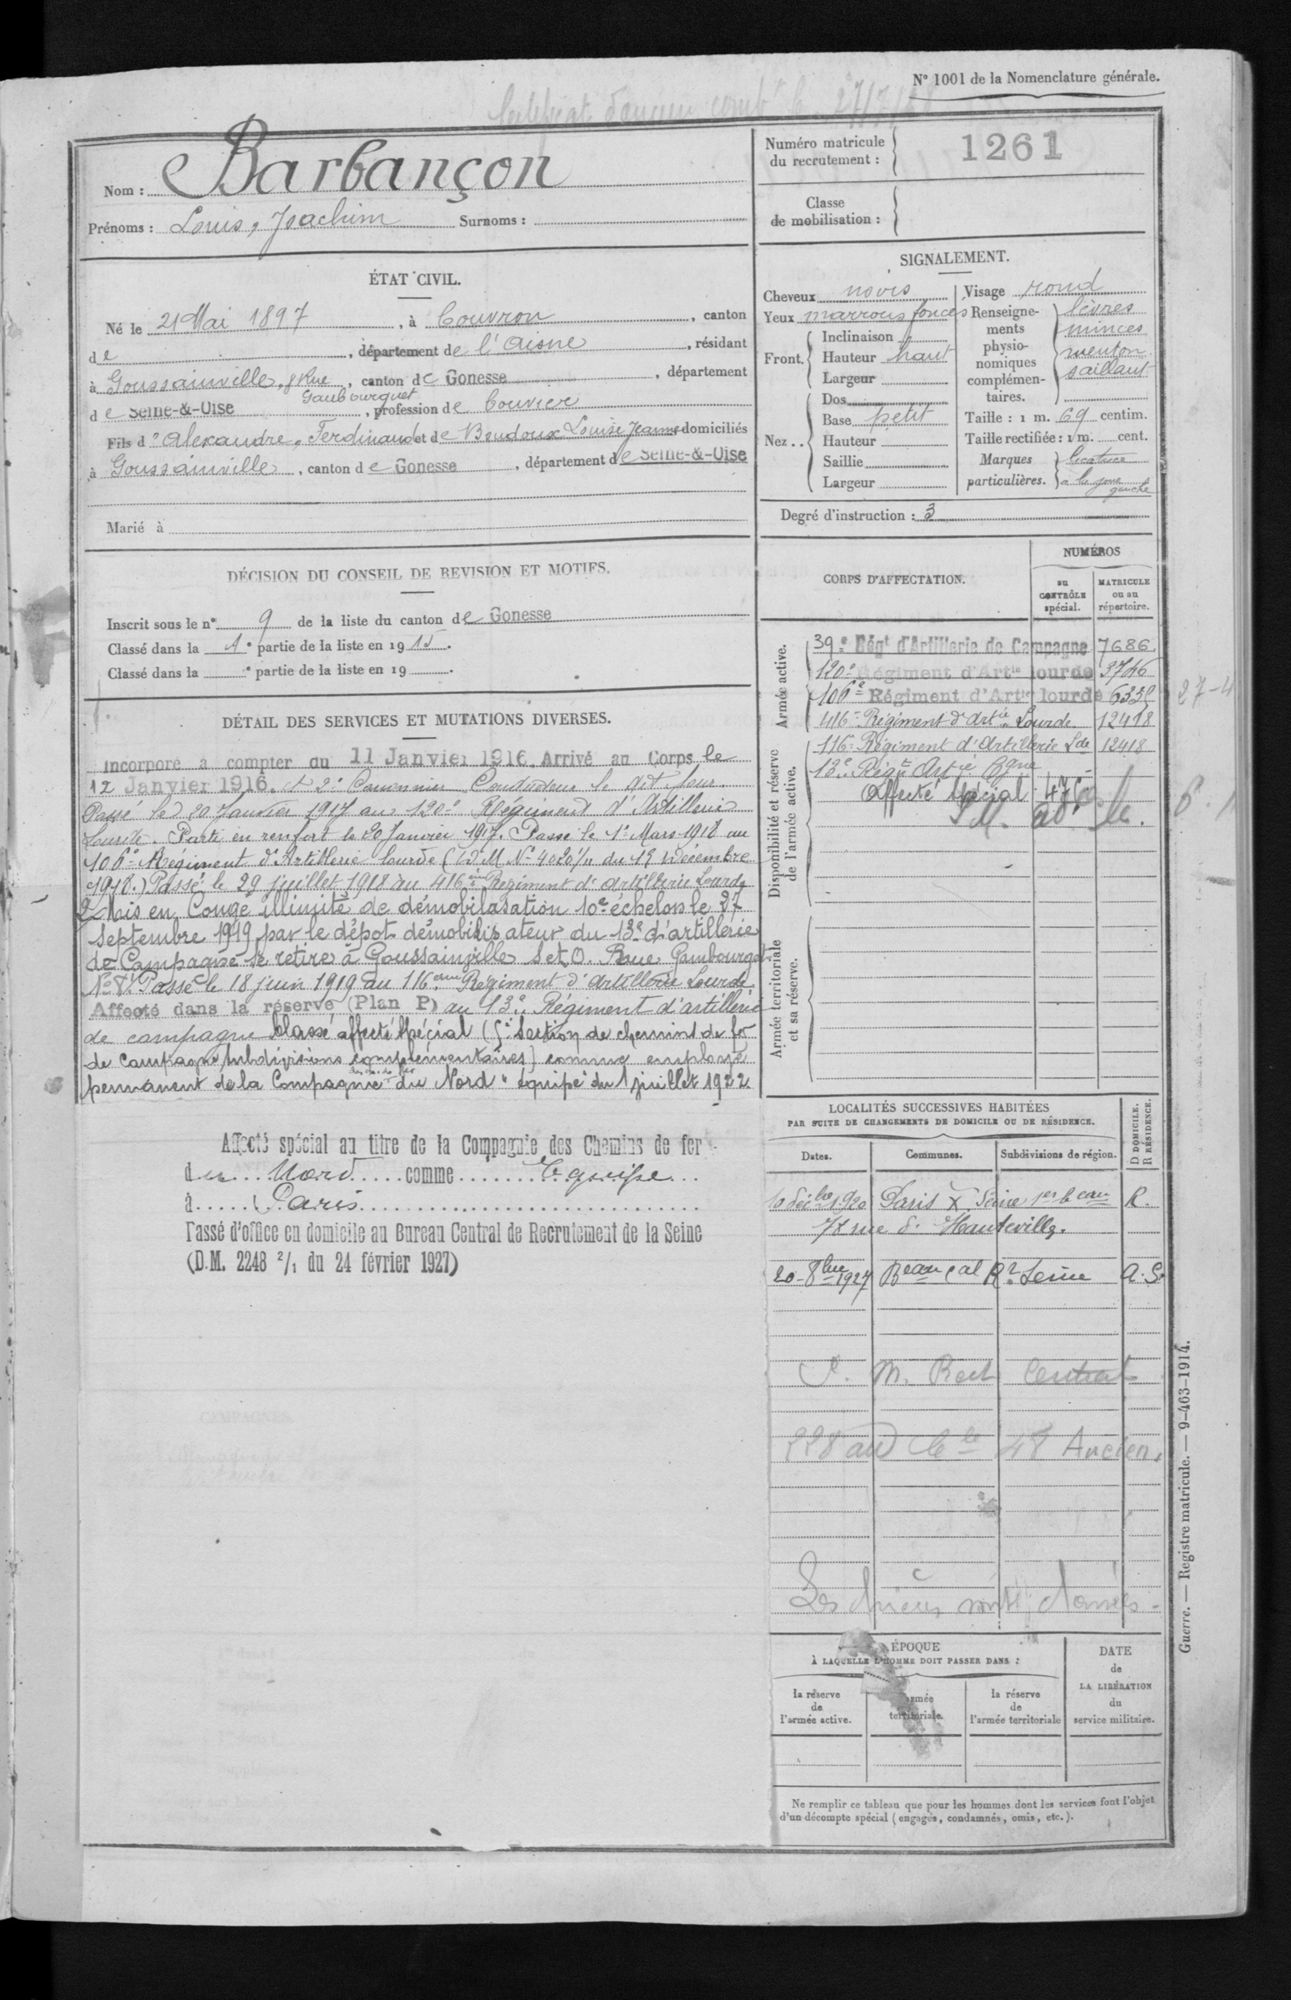 N° 1001 de la Nomenclature générale.
Certificat d'ancien comb
Nom : Barbançon
Prénoms : Louis, Joachim Surnoms :
Numéro matricule du recrutement : 1261
Classe de mobilisation :
ÉTAT CIVIL.
Né le 21 Mai 1897, à Couvron, canton
de , département de l'Aisne, résidant
à Goussainville, 8 Rue Gambourguet, canton de Gonesse, département
de Seine-&-Oise, profession de bouvier
Fils d'Alexandre, Ferdinand et de Beudoux Louise Jeanne domiciliés
à Goussainville, canton de Gonesse, département de Seine-&-Oise
Marié à
SIGNALEMENT.
Cheveux noirs
Yeux marrons foncés
Front. Inclinaison
Hauteur haut
Largeur
Nez.. Dos
Base petit
Hauteur
Saillie
Largeur
Visage rond
Renseignements physionomiques complémentaires. lèvres minces menton saillant
Taille : 1 m. 69 centim.
Taille rectifiée : 1 m. cent.
Marques particulières. cicatrice à la joue gauche
Degré d'instruction : 3
DÉCISION DU CONSEIL DE REVISION ET MOTIFS.
Inscrit sous le n° 9 de la liste du canton de Gonesse
Classé dans la 1e partie de la liste en 1915.
Classé dans la e partie de la liste en 19 .
DÉTAIL DES SERVICES ET MUTATIONS DIVERSES.
Incorporé à compter du 11 Janvier 1916. Arrivé au Corps le
12 Janvier 1916. et 2e Canonnier Conducteur le dit jour.
Passé le 20 Janvier 1917 au 120e Régiment d'Artillerie
Lourde. Parti en renfort le 20 Janvier 1917. Passé le 1er Mars 1918 au
106e Régiment d'Artillerie lourde (D.M. N° 4020 du 19 Décembre
1918.) Passé le 29 juillet 1918 au 416ème Régiment d'Artillerie Lourde
Mis en Congé illimité de démobilisation 10e échelon le 27
Septembre 1919 par le dépôt démobilisateur du 13e d'artillerie
de Campagne se retire à Goussainville S et O. Rue Gambourget
N° 8. Passé le 18 juin 1919 au 116ème Régiment d'Artillerie Lourde
Affecté dans la réserve (Plan P) au 13e Régiment d'artillerie
de campagne Classé affecté spécial (5e Section de chemins de fer
de campagne, subdivisions complémentaires) comme employé
permanent de la Compagnie des ch. de fer du Nord "équipe" du 1 juillet 1922
Affecté spécial au titre de la Compagnie des Chemins de fer
du Nord comme Equipe
à Paris
Passé d'office en domicile au Bureau Central de Recrutement de la Seine
(D.M. 2248 2/1 du 24 février 1927)
CORPS D'AFFECTATION.
NUMÉROS
au CONTRÔLE spécial.
MATRICULE ou au répertoire.
Armée active.
39e Régt d'Artillerie de Campagne 7686
120e Régiment d'Artie lourde 3746
106e Régiment d'Artie lourde 6339
416e Régiment d'Artie Lourde 12418
Disponibilité et réserve de l'armée active.
116e Régiment d'Artillerie Lde 12418
13e Régt Artie
Affecté spécial
Armée territoriale et sa réserve.
27-4
LOCALITÉS SUCCESSIVES HABITÉES
PAR SUITE DE CHANGEMENTS DE DOMICILE OU DE RÉSIDENCE.
Dates. Communes. Subdivisions de région. D DOMICILE. R RÉSIDENCE.
10 décbre 1920 Paris X Seine 1er b can R.
78 rue d'Hauteville.
20-8bre 1927 Beau Cal Rt Seine A.S.
P. M. Rect Central
228 Ancien
ÉPOQUE
À LAQUELLE L'HOMME DOIT PASSER DANS :
la réserve de l'armée active.
l'armée territoriale.
la réserve de l'armée territoriale
DATE de LA LIBÉRATION du service militaire.
Ne remplir ce tableau que pour les hommes dont les services font l'objet
d'un décompte spécial (engagés, condamnés, omis, etc.).
Guerre. — Registre matricule. — 9-463-1914.